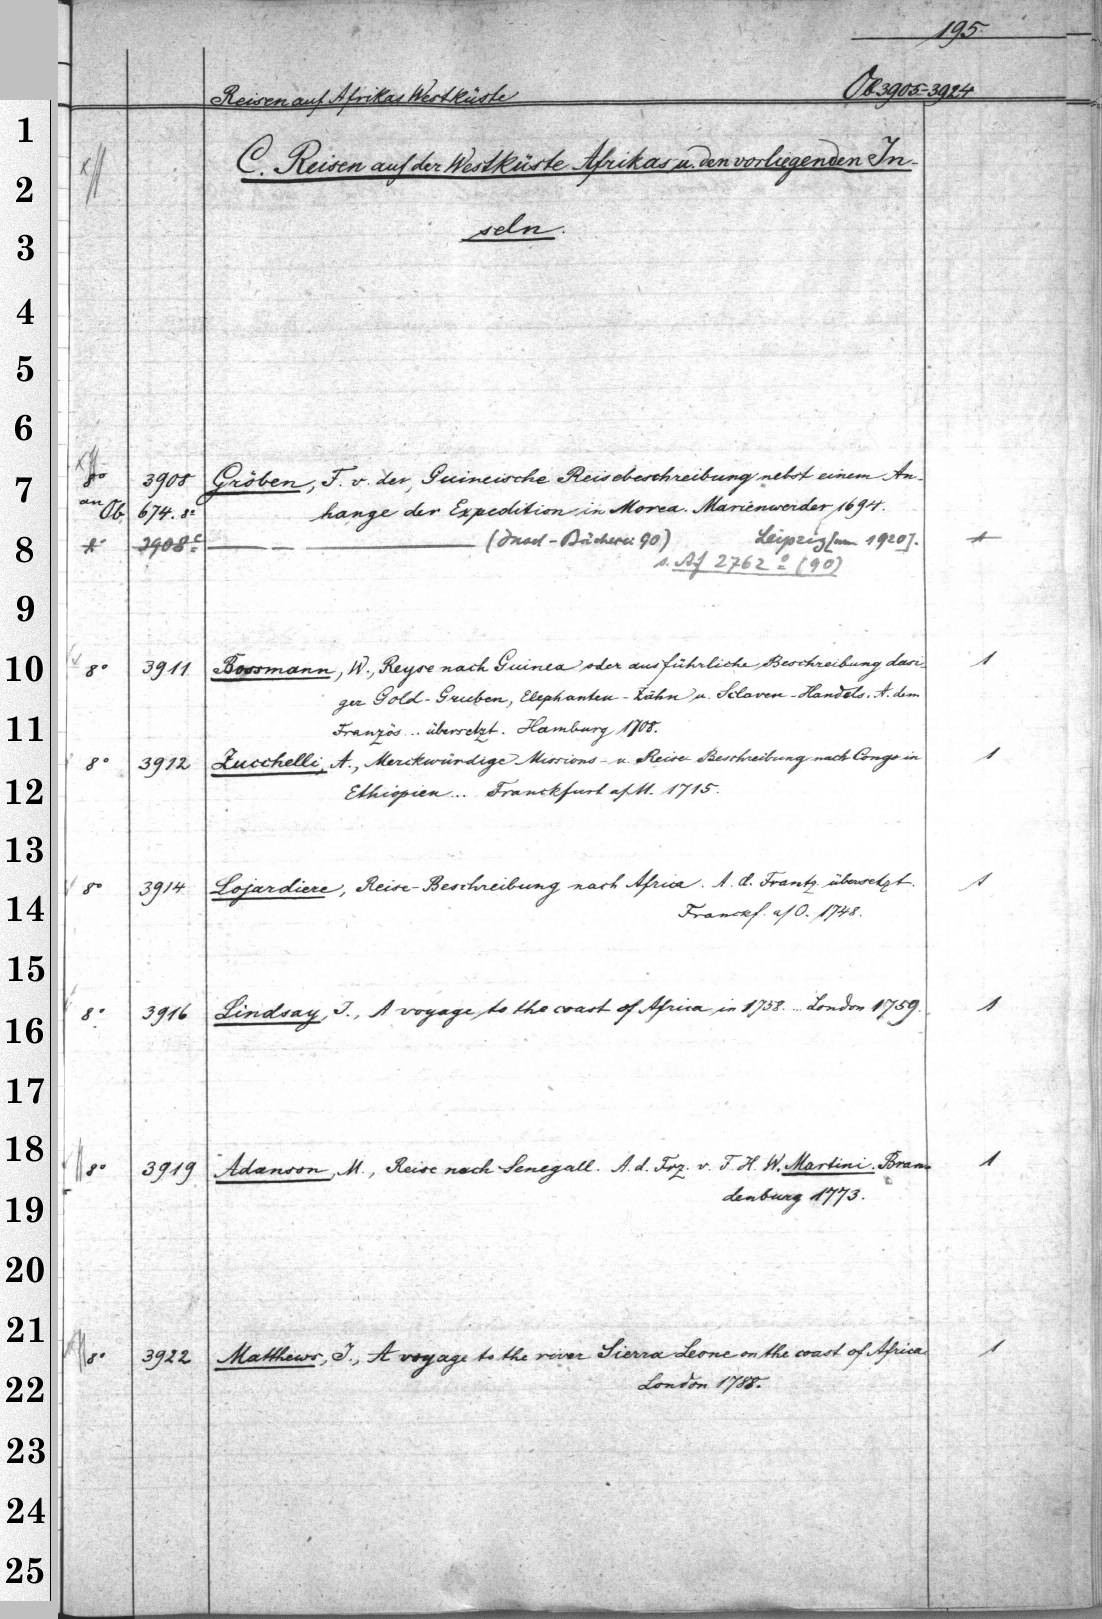 195.
Reisen auf Afrikas Westküste Ob 3905-3924
1
C. Reisen auf der Westküste Afrikas u. den vorliegenden In-
2
seln.
3
4
5
6
8° 3908 Gröben, F. v. der, Guineische Reisebeschreibung nebst einem An-
7
an Ob 674. 8° hange der Expedition in Morea. Marienwerder, 1694.
8
3908c (Insel-Bücherei 90) Leipzig [um 1920]. 1
s. Af 2762° (90)
9
10
8° 3911 Bossmann, W., Reyse nach Guinea oder ausführliche Beschreibung dasi-
ger Gold-Gruben, Elephanten-Zähn u. Sclaven-Handels. A. dem 1
11
Französ... übersetzt. Hamburg 1708.
8° 3912 Zucchelli, A., Merckwürdige Missions- u. Reise Beschreibung nach Congo in 1
12
Ethiopien... Franckfurt a/M. 1715.
13
8° 3914 Lojardiere, Reise-Beschreibung nach Africa. A. d. Frantz. übersetzt. 1
14
Franckf. a/O. 1748.
15
8° 3916 Lindsay, J., A voyage to the coast of Africa in 1758... London 1759. 1
16
17
18
8° 3919 Adanson, M., Reise nach Senegall. A. d. Frz. v. F. H. W. Martini. Bran- 1
19
denburg 1773.
20
21
8° 3922 Matthews, J., A voyage to the river Sierra Leone on the coast of Africa 1
22
London 1788.
23
24
25